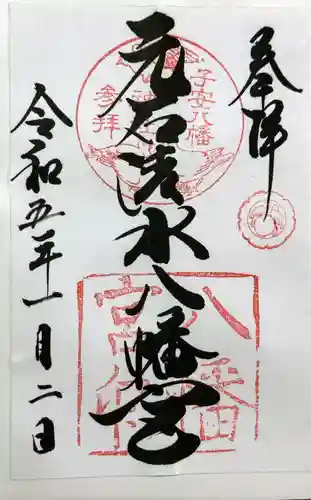 奉拝
元石清水八幡宮
令和五年一月二日
子安八幡
参拝